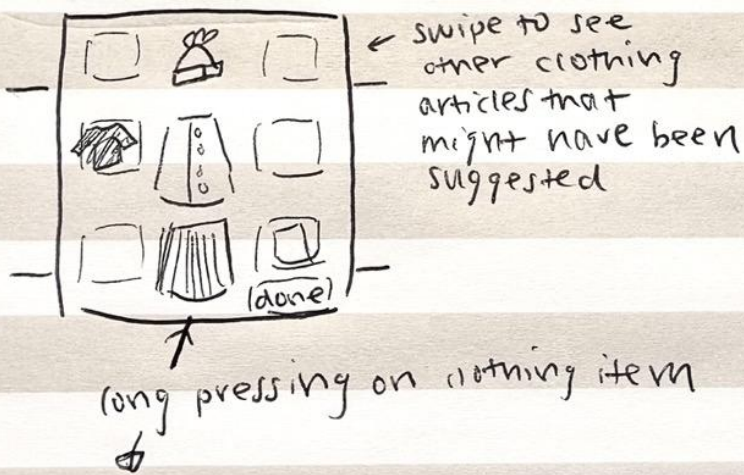 ← swipe to see
other clothing
articles that
might have been
suggested
(done)
long pressing on clothing item